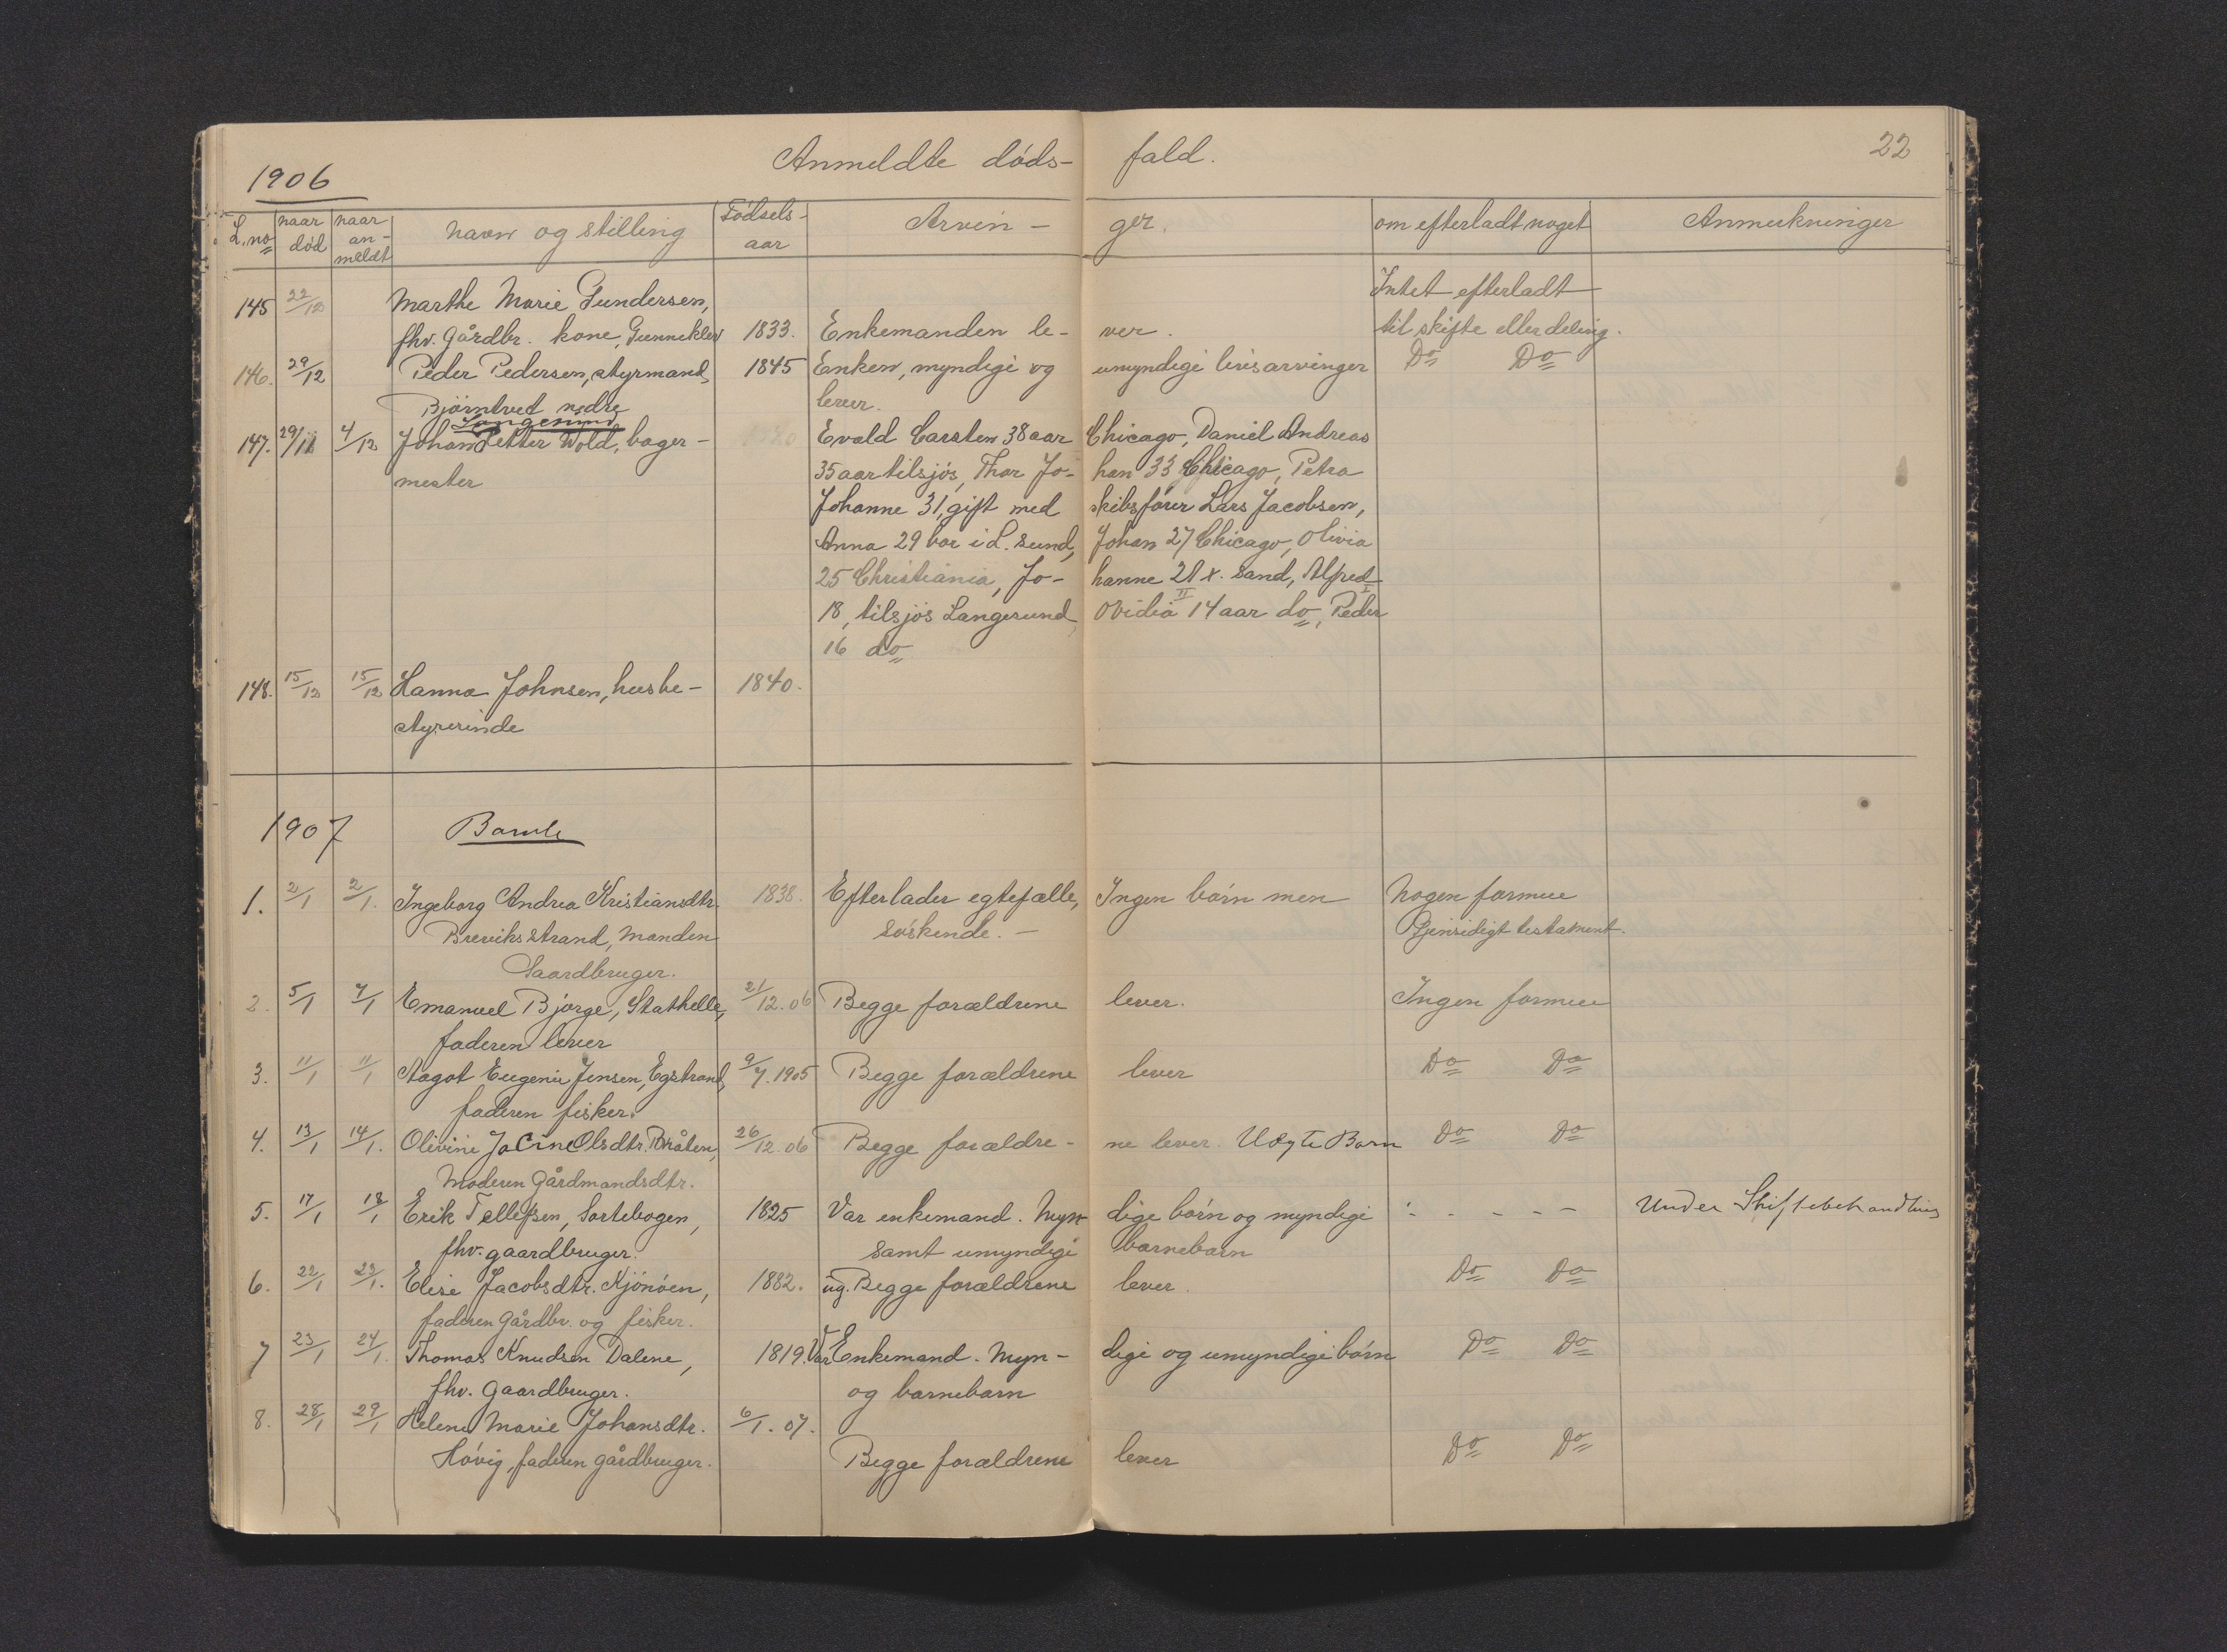 1906 Anmeldte døds- fald. 22
L.no naar død naar an-meldt navn og stilling Fødsels-aar Arvin- ger. om efterladt noget Anmerkninger
145 22/12 Marthe Marie Gundersen, Intet efterladt
fhv. gårdbr. kone, Gunneklev 1833. Enkemanden le- ver. til skifte eller deling.
146. 29/12 Peder Pedersen, styrmand, 1845 Enken, myndige og umyndige livsarvinger Do Do
Bjørntvet nedre lever.
Langesund
147. 29/11 4/12 Johan Petter Wold, bager- Evald Carsten 38 aar Chicago, Daniel Andreas
mester 35 aar tilsjøs, Thor Jo- han 33 Chicago, Petra
Johanne 31, gift med skibsfører Lars Jacobsen,
Anna 29 bor i L. sund, Johan 27 Chicago, Olivia
25 Christiania, Jo- hanne 21 x. sand, Alfred
18, tilsjøs Langesund, Ovidia 14 aar do, Peder
16 do
148. 15/12 15/12 Hanna Johnsen, husbe- 1840.
styrerinde
1907 Bamle
1. 2/1 2/1. Ingeborg Andrea Kristiansdtr. 1838. Efterlader egtefælle, Ingen børn men Nogen formue
Breviksstrand, manden søskende. - Gjensidigt testament.
Gaardbruger.
2. 5/1 7/1 Emanuel Bjorge, Stathelle, 21/12.06 Begge forældrene lever. Ingen formue
faderen lever
3. 11/1 11/1 Aagot Eugenie Jensen, Egstrand, 9/7.1905 Begge forældrene lever Do Do
faderen fisker.
4. 13/1 14/1. Olivine Jacine Olsdtr. Bråten, 26/12.06 Begge forældre- ne lever. Uægte Barn Do Do
Moderen Gårdmandsdtr.
5. 17/1 18/1 Erik Tellefsen, Sortebogen, 1825 Var enkemand. Myn- dige børn og myndige - - - - - Under Skiftebehandling
fhv. gaardbruger. samt umyndige barnebarn
6. 22/1 23/1. Elise Jacobsdtr. Kjønøen, 1882. ug. Begge forældrene lever. Do Do
faderen gårdbr. og fisker.
7 23/1 24/1. Thomas Knudsen Dalene, 1819. Var Enkemand. Myn- dige og umyndige børn Do Do
fhv. Gaardbruger. og barnebarn
8. 28/1 29/1 Helene Marie Johansdtr. 6/1.07.
Høvig, faderen gårdbruger. Begge forældrene lever Do Do